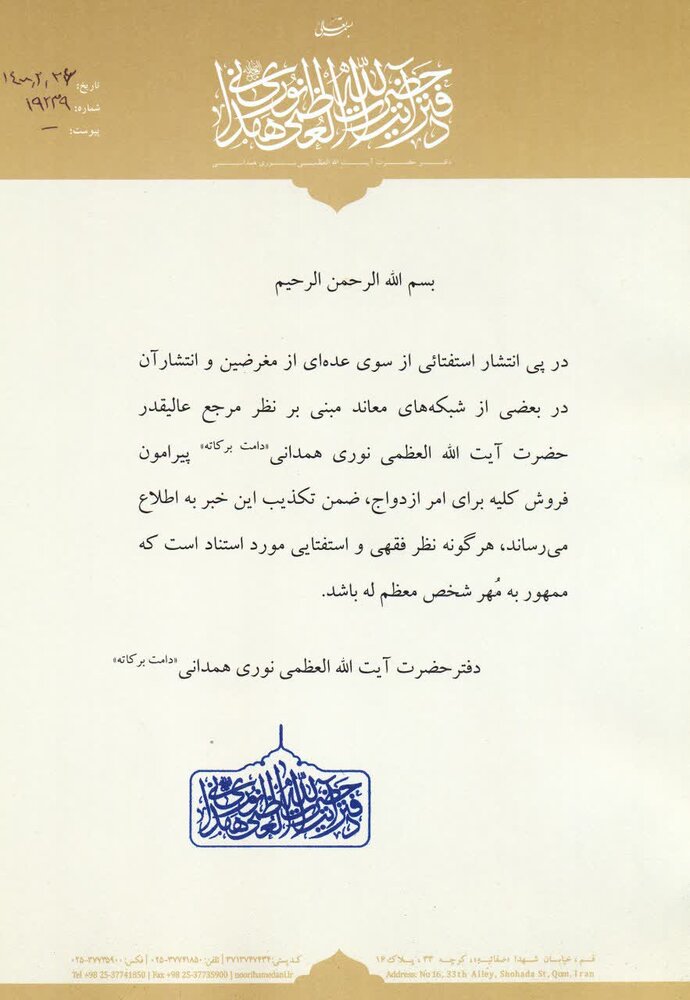 بسمه تعالی
دفتر حضرت آیت الله العظمی نوری همدانی
دفتر حضرت آیت الله العظمی نوری همدانی
تاریخ:
شماره: ۱۹۲۳۹
پیوست: —
بسم الله الرحمن الرحیم
در پی انتشار استفتائی از سوی عده‌ای از مغرضین و انتشارآن
در بعضی از شبکه‌های معاند مبنی بر نظر مرجع عالیقدر
حضرت آیت الله العظمی نوری همدانی«دامت برکاته» پیرامون
فروش کلیه برای امر ازدواج، ضمن تکذیب این خبر به اطلاع
می‌رساند، هرگونه نظر فقهی و استفتایی مورد استناد است که
ممهور به مُهر شخص معظم له باشد.
دفترحضرت آیت الله العظمی نوری همدانی«دامت برکاته»
دفتر حضرت آیت الله العظمی نوری همدانی
قم، خیابان شهدا «صفائیه»، کوچه ۳۳، پلاک ۱۶
کدپستی: ۳۷۱۳۷۴۷۶۳۴ | تلفن: ۳۷۷۴۱۸۵۰-۰۲۵ | فکس: ۳۷۷۳۵۹۰۰-۰۲۵
Address: No 16, 33th Alley, Shohada St, Qom, Iran
Tel +98 25-37741850 | Fax +98 25-37735900 | noorihamedani.ir